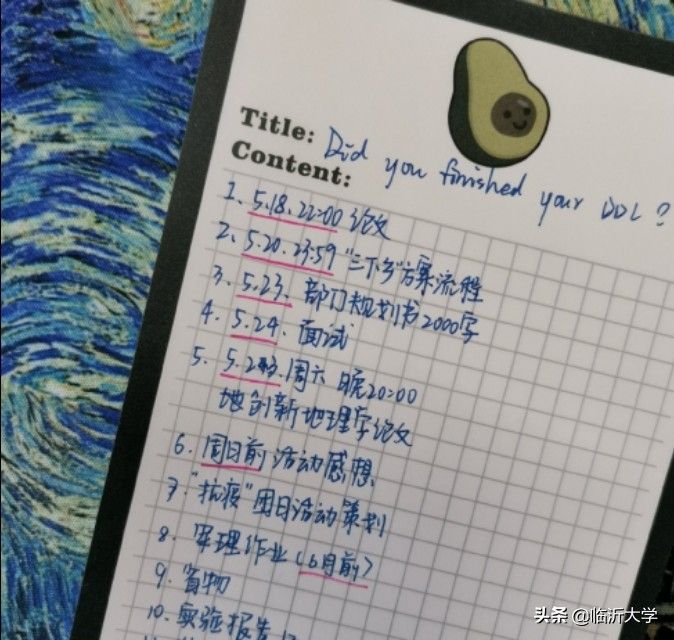 Title: Did you finished your DDL?
Content:
1. 5.18. 22:00 论文
2. 5.20. 23:59 "三下乡"方案流程
3. 5.23. 部门规划书2000字
4. 5.24. 面试
5. 周六 晚20:00
地创新地理学论文
6. 周日前 活动感想
7. "抗疫"团日活动策划
8. 审理作业(6月前)
9.
10. 实验报告
头条 @临沂大学